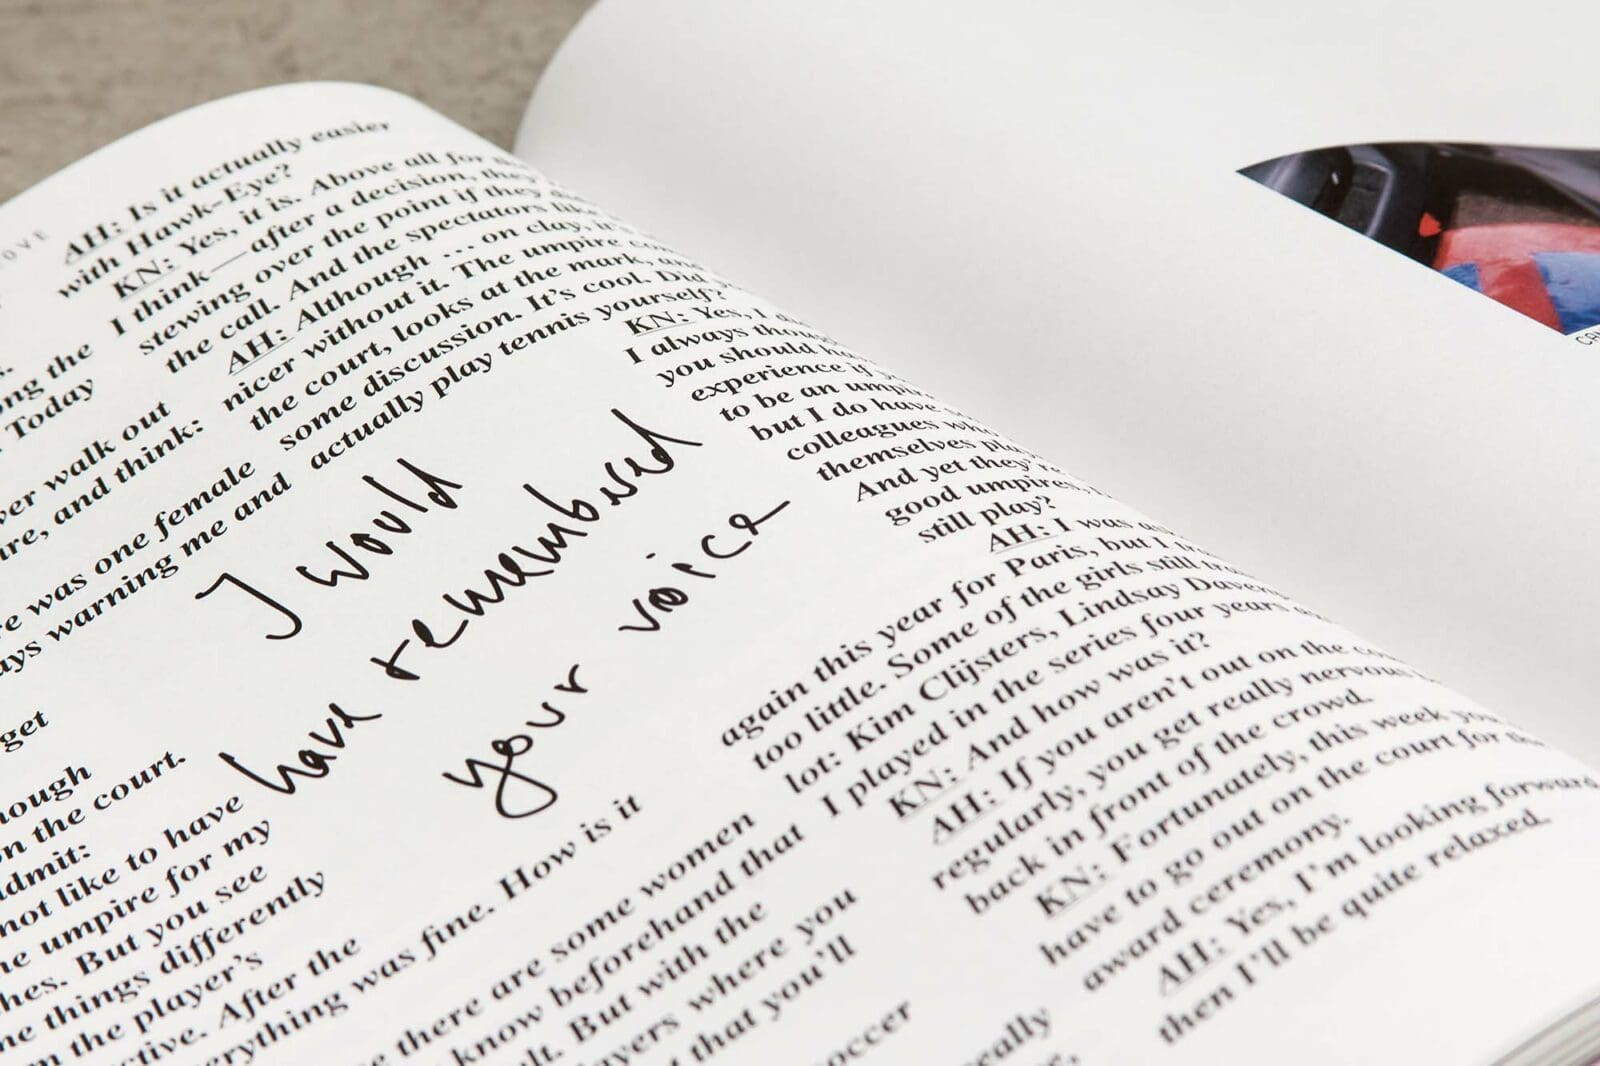 AH: Is it actually easier
with Hawk-Eye?
KN: Yes, it is. Above all for
I think—after a decision, they
stewing over the point if they
the call. And the spectators like
AH: Although ... on clay, it's
nicer without it. The umpire
the court, looks at the mark,
some discussion. It's cool. Did
actually play tennis yourself?
KN: Yes, I
I always
you should
experience if
to be an
but I do have
colleagues
themselves
And yet they're
good umpires,
still play?
AH: I was
again this year for Paris, but I
too little. Some of the girls still
lot: Kim Clijsters, Lindsay
I played in the series four years
KN: And how was it?
AH: If you aren't out on the
regularly, you get really nervous
back in front of the crowd.
KN: Fortunately, this week you
have to go out on the court for
award ceremony.
AH: Yes, I'm looking forward
then I'll be quite relaxed.
I would
have remembered
your voice
the
Today
walk out
and think:
was one female
warning me and
get
the court.
not like to have
umpire for my
But you see
things differently
the player's
After the
was fine. How is it
there are some women
know beforehand that
But with the
where you
that you'll